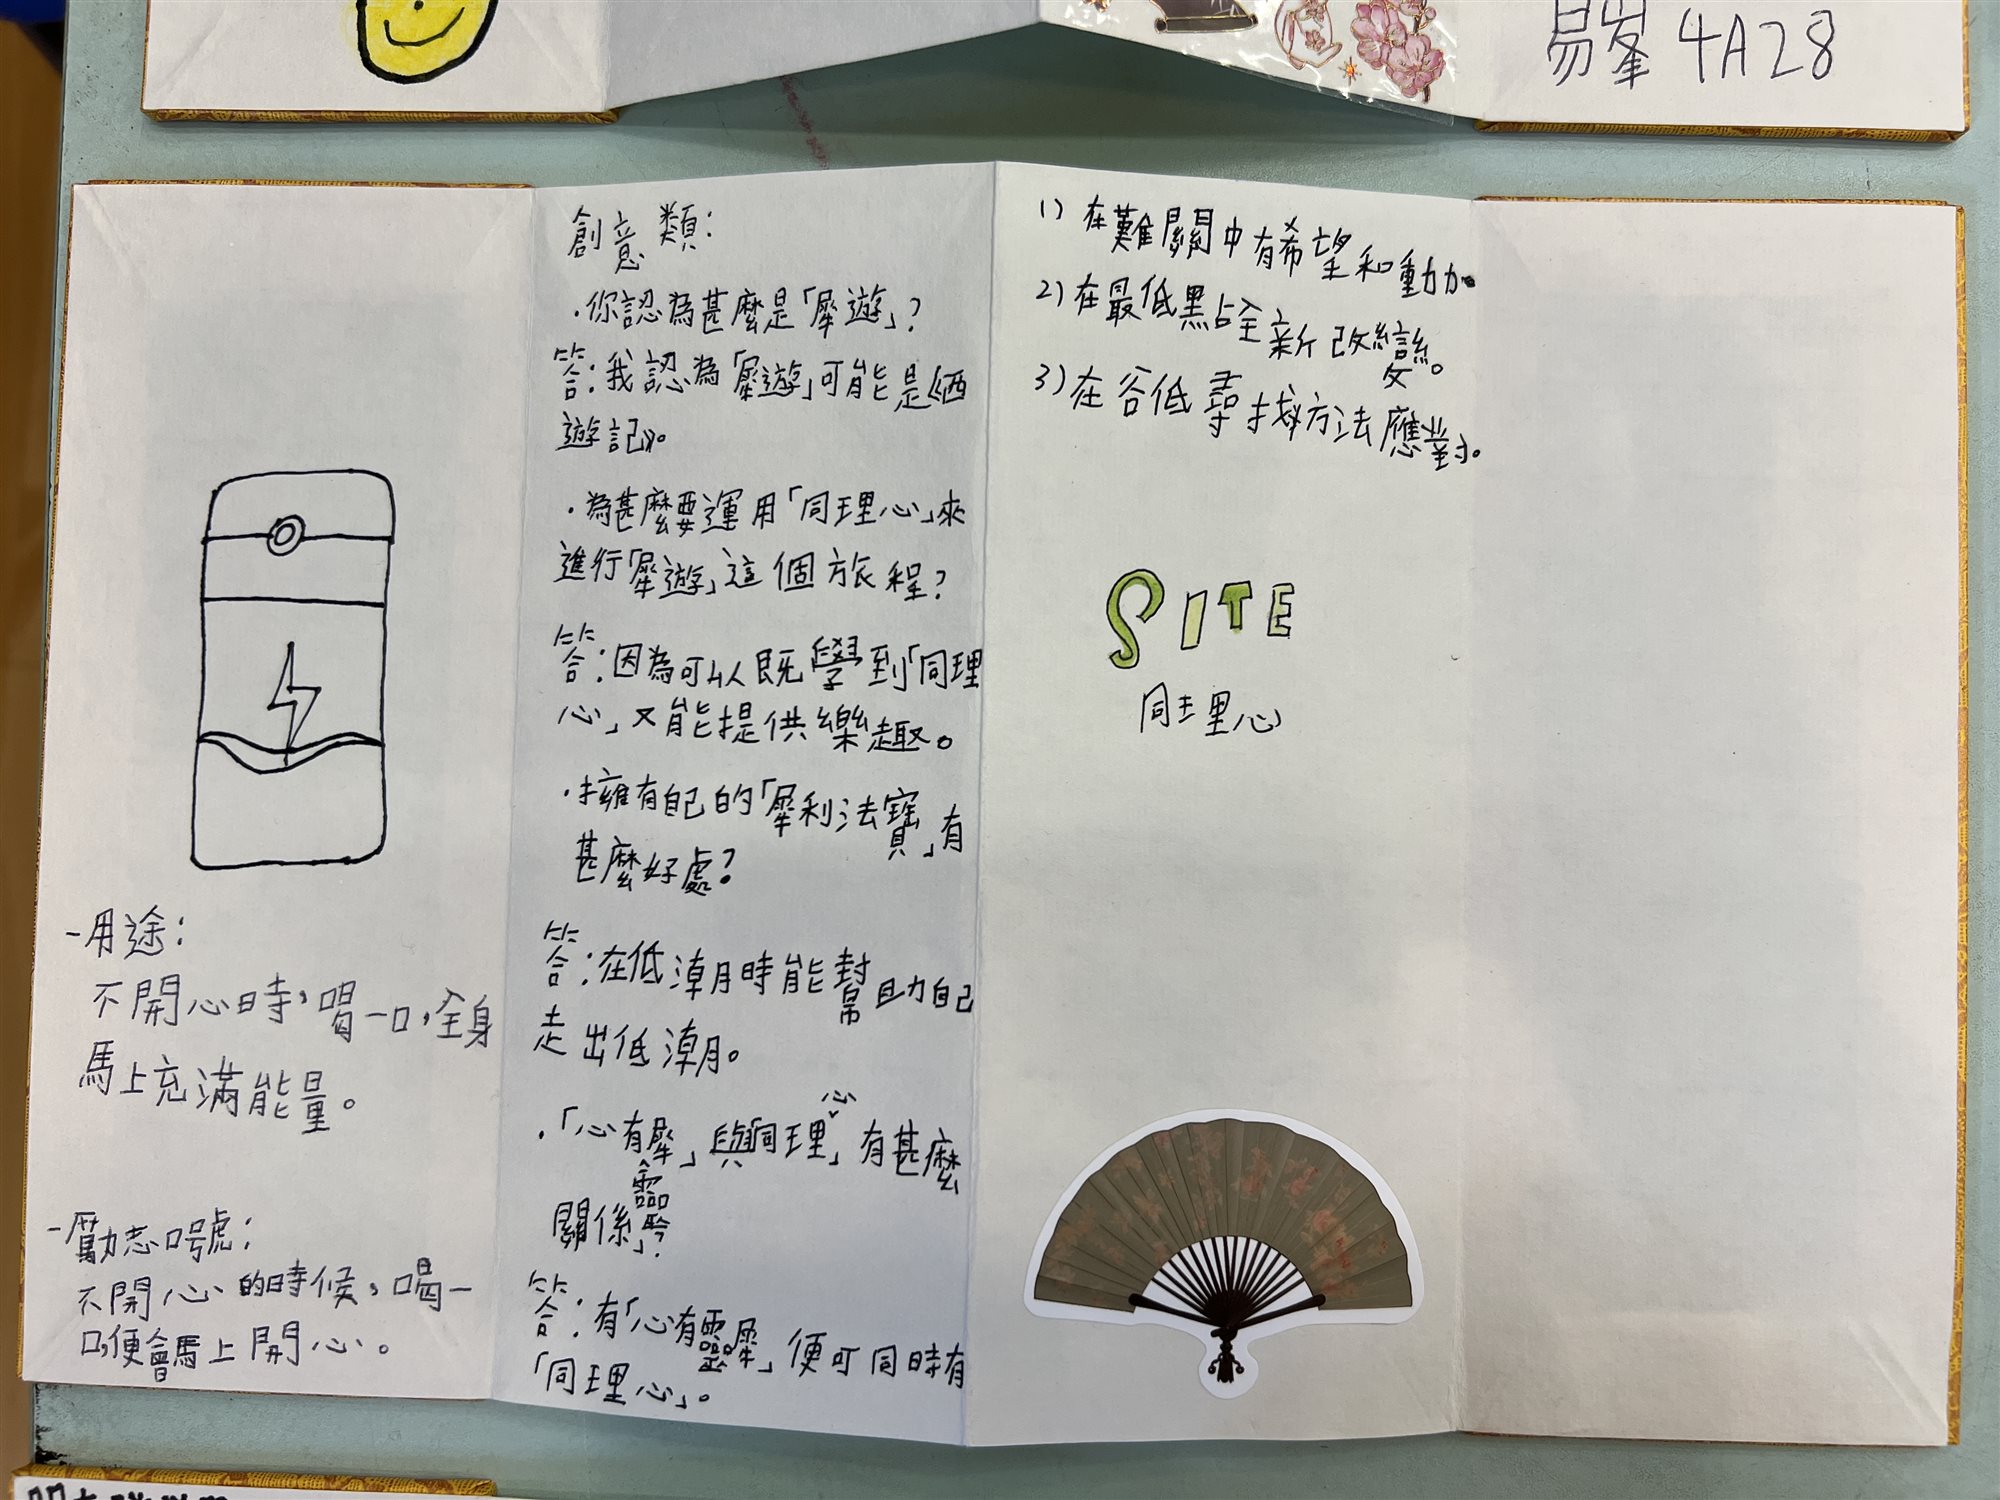 易峯 4A28
-用途：
不開心時，喝一口，全身
馬上充滿能量。
-勵志口號：
不開心的時候，喝一
口便會馬上開心。
創意類：
·你認為甚麼是「犀遊」？
答：我認為「犀遊」可能是《西
遊記》。
·為甚麼要運用「同理心」來
進行「犀遊」這個旅程？
答：因為可以既學到「同理
心」又能提供樂趣。
·擁有自己的「犀利法寶」有
甚麼好處？
答：在低潮時能幫助自己
走出低潮。
·「心有靈犀」與「同理心」有甚麼
關係」？
答：有「心有靈犀」便可同時有
「同理心」。
1) 在難關中有希望和動力。
2) 在最低點全新改變。
3) 在谷低尋找方法應對。
SITE
同理心